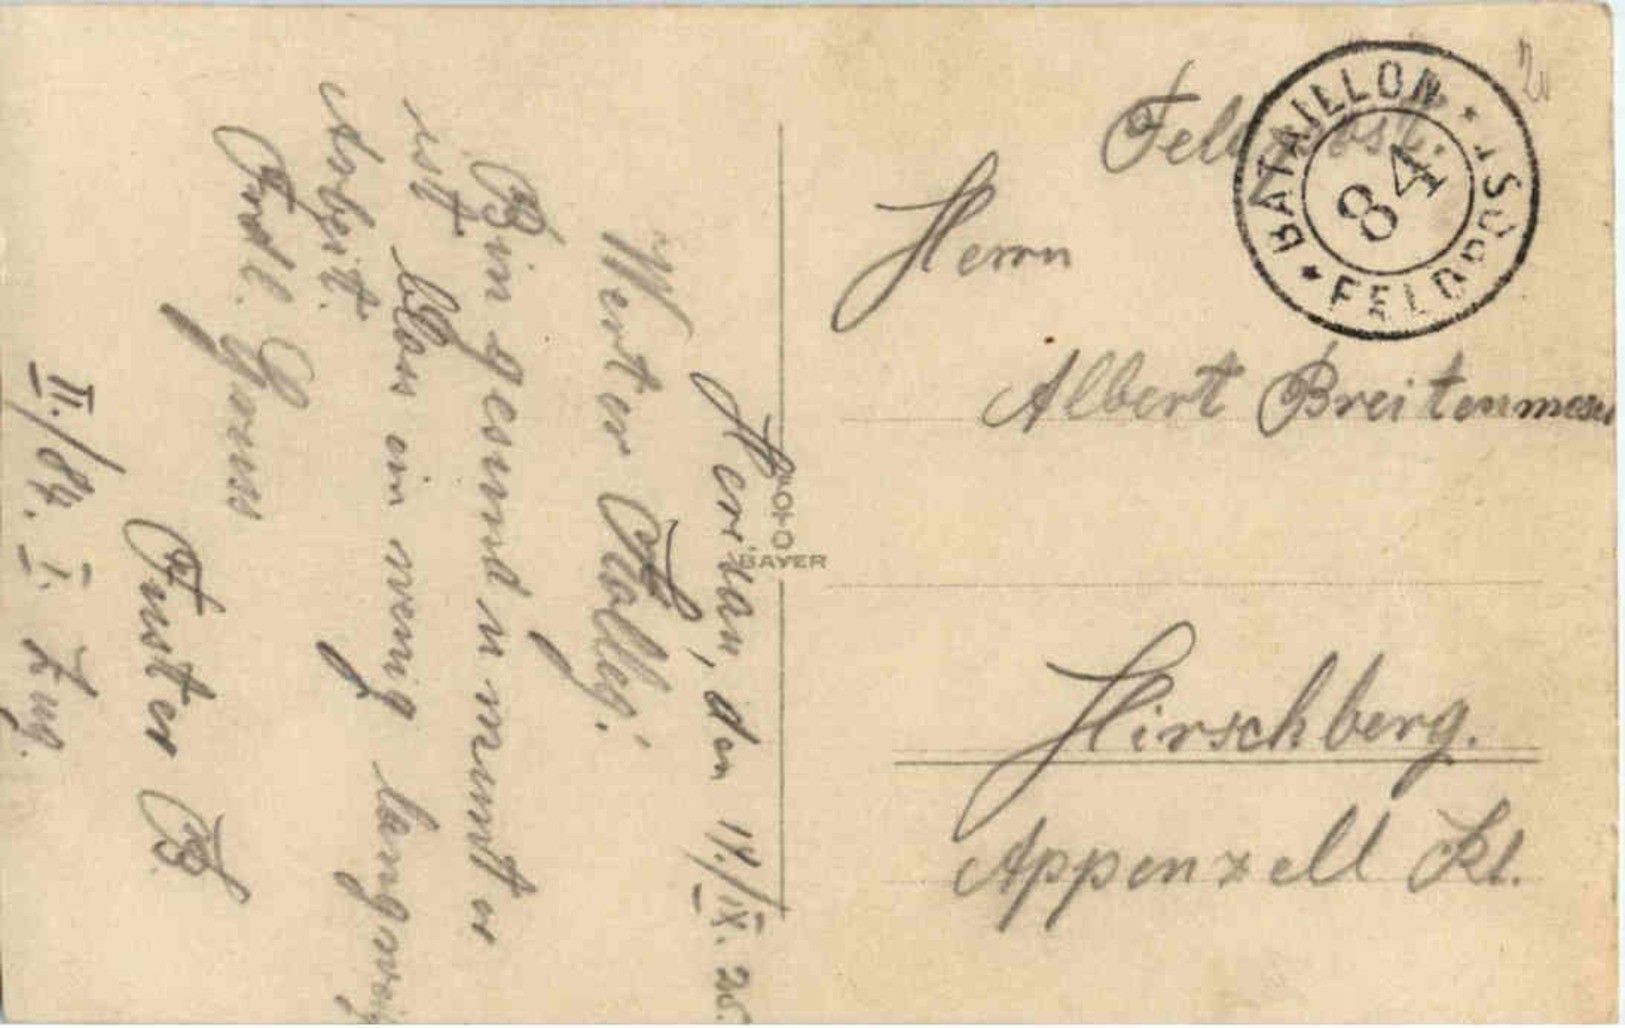 Herisau, den 14./IX. 25.
Werter Kolleg!
Bin gesund u. munter
ist blos ein wenig langweilig
dabei.
Frdl. Gruss
Fuster B.
II./84. I. Zug.
BAYER
Feldpost.
BATAILLON * FELDPOST *
84
Herrn
Albert Breitenmoser
Hirschberg.
Appenzell Kt.